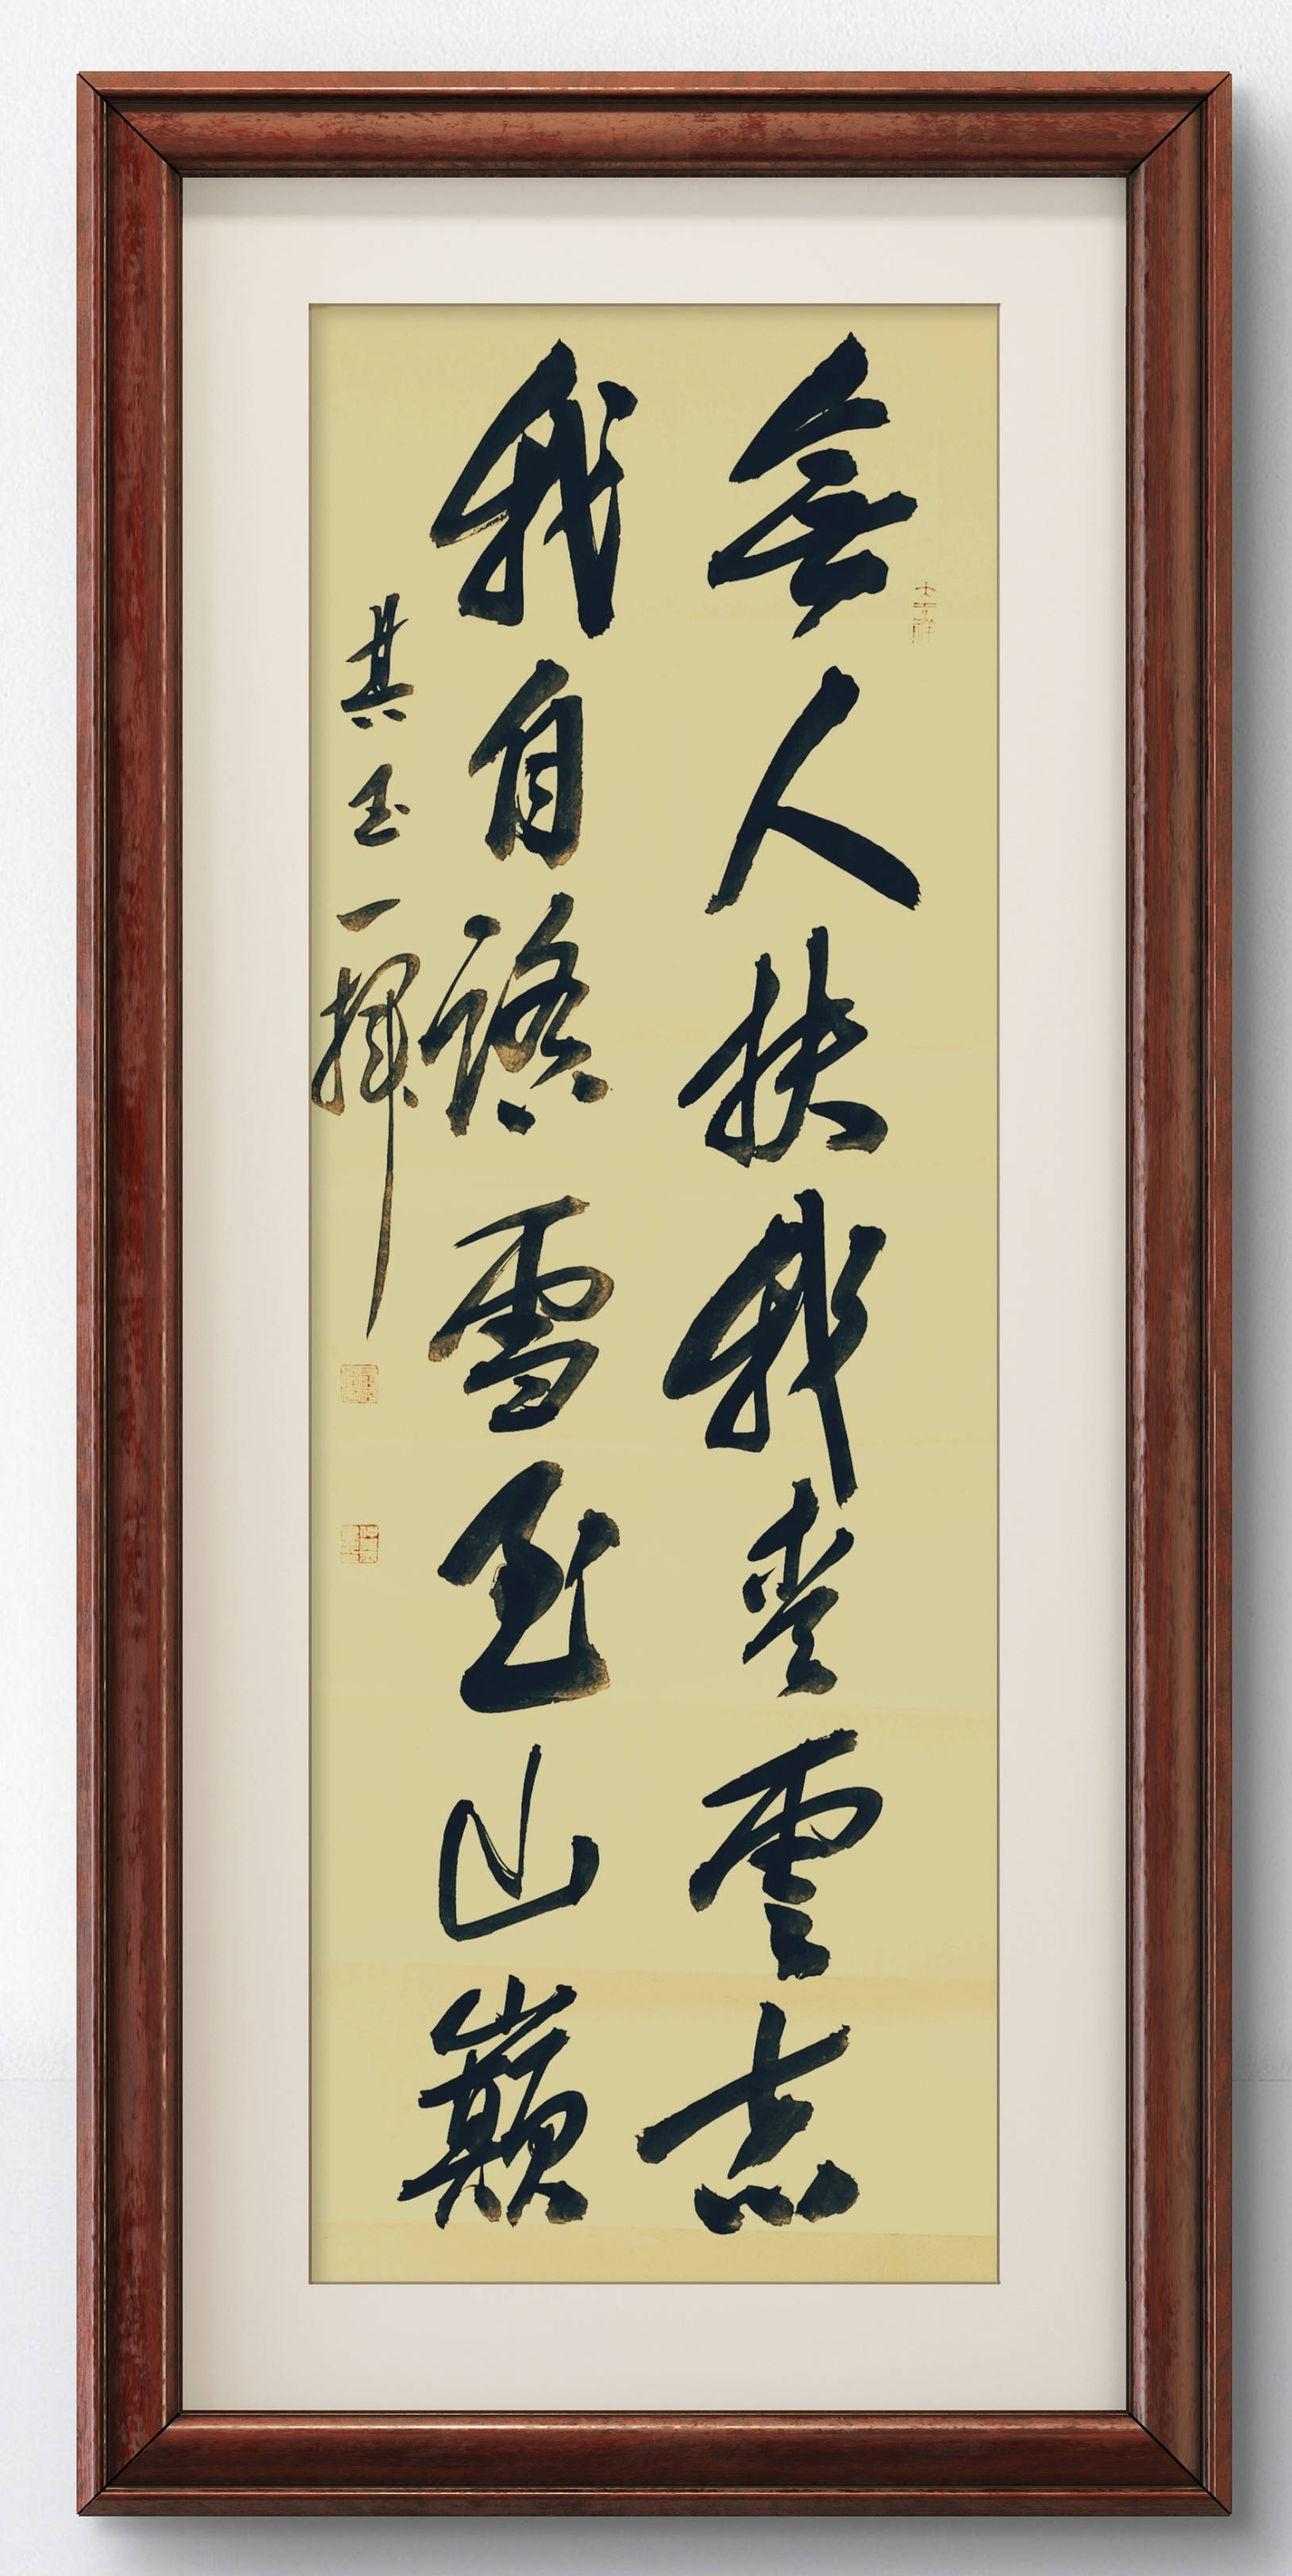 無人扶我青雲志
我自踏雪至山巔
其玉一揮
大吉祥